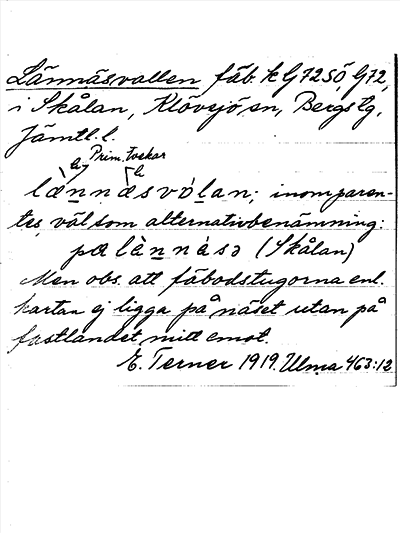 Lännäsvallen fäb. k G 72 SÖ, G72,
i Skålan, Klövsjö sn, Bergs tg,
Jämtl. l.
a Prim. tvekar
a
lænnæsvòlan; inom paren-
tes, väl som alternativbenämning:
pæ lænnásə (Skålan)
Men obs. att fäbodstugorna enl.
kartan ej ligga på näset utan på
fastlandet mitt emot.
E. Terner 1919. Ulma 463:12